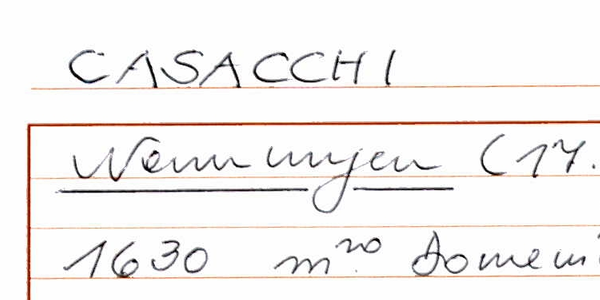 CASACCHI
Nennungen (17.
1630 m.ro Domeni